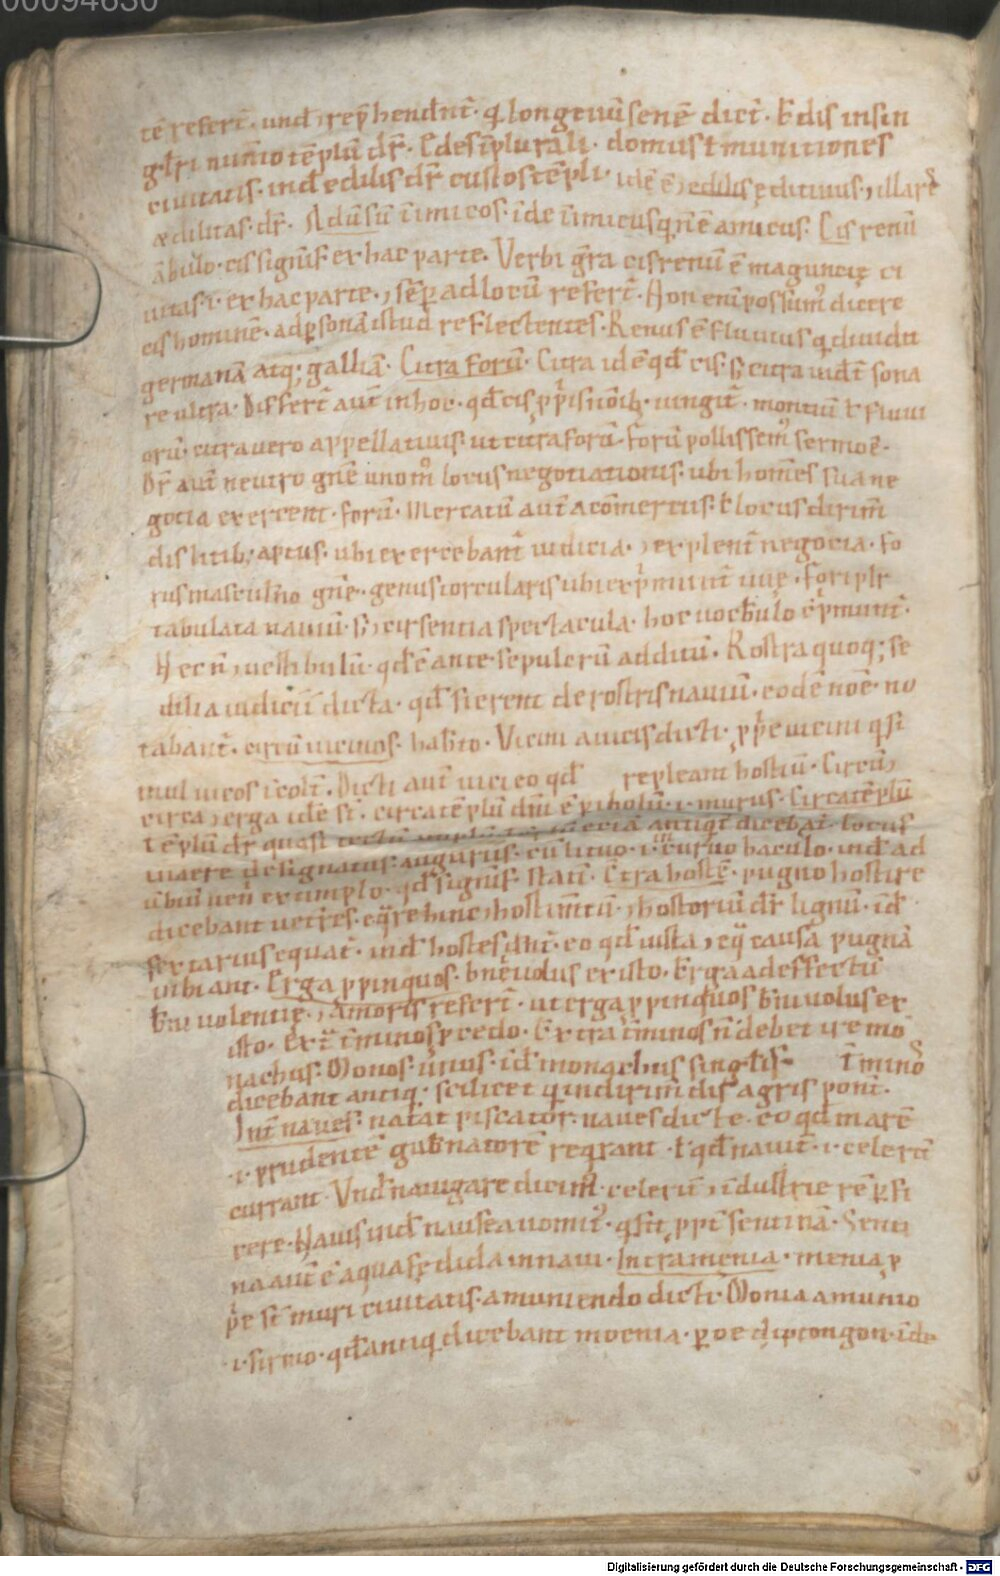 00094830
tē referī. und ⁊ rep̄hendnt̄. q longevū senē dict̄. Edis in sin
gl̄ri num̄o tēplū dr̄. Edes ī plurali. domus t̄ munitiones
civitatis. ind edilis dr̄ custos tēpli. idē ē ⁊ edilis ędituus. ⁊ illar̄
ædilitas. dr̄. Adūsū īimicos. īde īimicus q̄ n̄ ē amicus. Cis renū
ābulo. cis signīf ex hac parte. Verbi gr̄a cis renū ē maguncię ci
vitas .i. ex hac parte. ⁊ sēp ad locū refert̄. Non enī possum̄ dicere
cis hominē. ad psonā istud reflectentes. Renus ē fluvius q dividit
germanā atq; galliā. Citra forū. Citra idē qđ cis. s; citra vidt̄ sona
re ultra. Differt̄ aut̄ in hoc. qđ cis p̄pis noīb; iungit̄. montiū t̄ fluvi
orū. citra vero appellativis. ut citra forū. forū pollissem̄ sermoē.
Dr̄ aut̄ neutro gn̄e uno m̄ locus negotiationis. ubi homīes sua ne
gotia exercent. forū. Mercatū aut̄ a cōmertiis. t̄ locus dirim̄
dis litib; aptus. ubi exercebant̄ iudicia. ⁊ explent̄ negocia. Fo
rus masculino gn̄e. genus torcularis ubi exp̄munt̄ uvę. fori plr̄
tabulata naviū. s; ⁊ cirsentia spectacula. hoc vocb̄ulo exp̄munt̄.
Hec n̄ ⁊ vestibulū. qđ ē ante sepulcrū additū. Rostra quoq; se
dilia iudiciū dicta. qđ fierent de rostris naviū. eodē noē no
tabant̄. circū vicinos. habito. Vicini a vicis dicti. p̄pe vicini q si
mul vicos icolt̄. Dicti aut̄ vici eo qđ repleant hostiū. Circū ⁊
circa ⁊ erga idē st̄. circa tēplū dn̄i ē pibolū .i. murus. Circa tēplū
tēplū dr̄ quasi tectū
maere designatus auguriis. cū lituo .i. curvo baculo. ind ad
v̄biū ven̄ extimplo. qđ signīf. statī. Ct̄ra hostē. pugno hostire
dicebant vet̄res. eq̄re hinc ⁊ hostimt̄ū. ⁊ hostoriū dr̄ lignū. īđ
sextarius equat̄. ind hostes dn̄t. eo qđ iusta ⁊ eq̄ causa pugnā
inhiant. Erga p̄pinquos. bn̄evolus existo. Erga ad effectū
b̄nivolentię. ⁊ amoris refert̄. ut erga p̄pinquos b̄nivolus ex
isto. Ext̄ t̄minos p̄cedo. Extra t̄minos n̄ debet ire mo
nachus. Monos. unus. īđ monachus singl̄is. T̄minos
dicebant antiq. scilicet q in dirim̄dis agris pont̄.
Int̄ naves. natat piscator. naves dictę. eo qđ marē
.i. prudentē gub̄natorē reqrant. t̄ qđ navit̄ .i. celerit̄
currant. Vnd navigare dicim̄. celerit̄ ⁊ īdustrie rē p̄fi
cere. Navis ind nausea vomit̄. q fit p̄pt̄ sentinā. Senti
na aut̄ ē aqua fędida in navi. Intra menia. menia p̄
p̄e st̄ muri civitatis. a muniendo dicti. Monia a munio
.i. firmo. qđ antiq dicebant moenia. p oe diptongon. īde
Digitalisierung gefördert durch die Deutsche Forschungsgemeinschaft - DFG